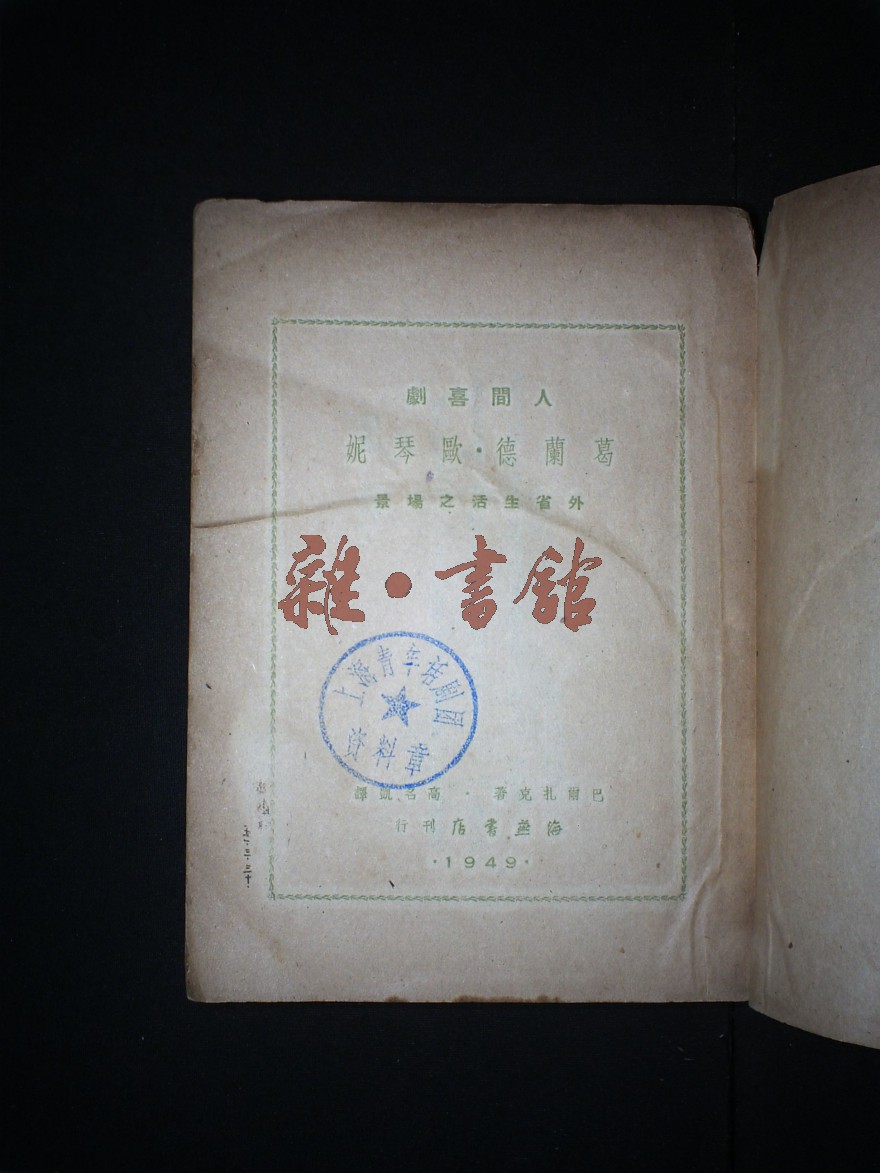 人間喜劇
葛蘭德·歐琴妮
外省生活之場景
雜·書館
上海青年話劇團
資料章
巴爾扎克著·高名凱譯
海燕書店刊行
·1949·